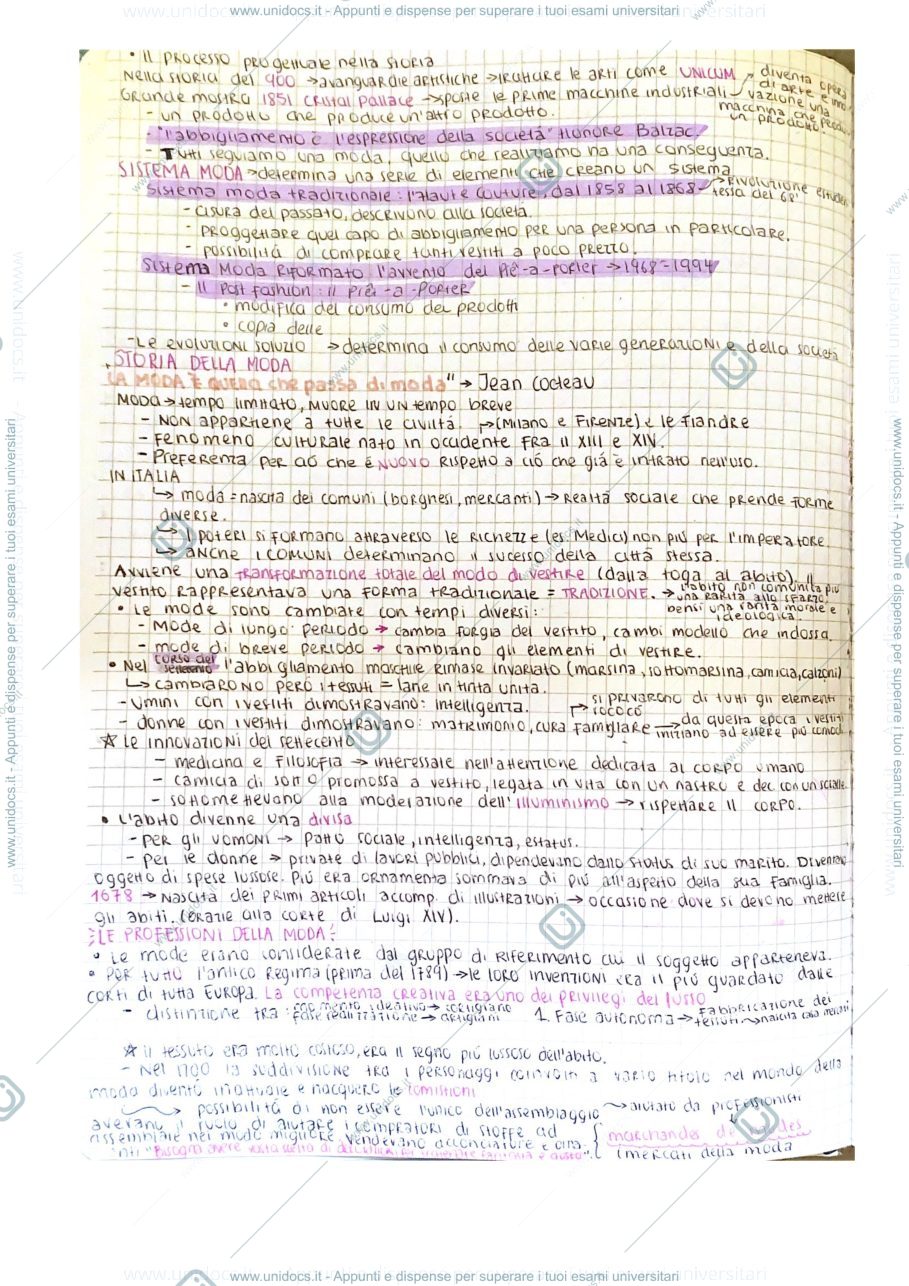 www.unidocs.it - Appunti e dispense per superare i tuoi esami universitari
• IL PROCESSO progettuale nella storia
Nella storia del 900 → avanguardie artistiche → trattare le arti come UNICUM → diventa opera di arte e inno-
Grande mostra 1851 Cristal Pallace → sposte le prime macchine industriali - vazione una macchina che produ un prodotto
- un prodotto che produce un'altro prodotto.
- "l'abbigliamento è l'espressione della società" Honore Balzac.
- Tutti seguiamo una moda, quello che realizziamo ha una conseguenza.
SISTEMA MODA → determina una serie di elementi che creano un sistema
Sistema moda tradizionale: l'Haute Couture, dal 1858 al 1868 → Rivoluzione studen tessa del 68'
- cisura del passato, descrivono alla società.
- proggettare quel capo di abbigliamento per una persona in particolare.
- possibilitá di comprare tanti vestiti a poco prezzo.
Sistema Moda Riformato l'avvento del Pêt-a-porter → 1968-1994
- Il Post fashion: il Prêt-a-Porter
• modifica del consumo dei prodotti
• copia delle
- Le evoluzioni soluzio → determina il consumo delle varie generazioni e della società
STORIA DELLA MODA
LA MODA È quello che passa di moda" → Jean Cocteau
MODA → tempo limitato, MUORE IN UN tempo breve
- NON appartiene a tutte le civiltà. → (Milano e Firenze) e le fiandre
- Fenomeno culturale nato in occidente FRA il XIII e XIV.
- Preferenza per ció che é NUOVO rispetto a ció che giá è intrato nell'uso.
IN ITALIA
↳ moda = nascita dei comuni (borghesi, mercanti) → Realtá sociale che prende forme
diverse.
↳ I poteri si formano attraverso le ricchezze (es Medici) non piú per l'imperatore
↳ anche i comuni determinano il sucesso della cittá stessa.
Avviene una transformazione totale del modo di vestire (dalla toga al abito). Il
vestito rappresentava una forma tradizionale = TRADIZIONE. → l'abito non comunita piu una rarità allo sfarzo, bensi una vanità morale e ideologica.
• Le mode sono cambiate con tempi diversi:
- Mode di lungo periodo → cambia forgia del vestito, cambi modello che indossa.
- mode di breve periodo → cambiano gli elementi di vestire.
• Nel corso del settecento l'abbigliamento maschile rimase invariato (marsina, sottomarsina, camicia, calzoni)
↳ cambiarono però i tessuti = lane in tinta unita.
- Umini con i vestiti dimostravano: intelligenza. → si privarono di tutti gli elementi rococó
- donne con i vestiti dimostravano: matrimonio, cura famigliare → da questa epoca i vestiti iniziano ad essere piu comodi
☆ Le innovazioni del settecento
- medicina e Filosofia → interessate nell'attenzione dedicata al corpo umano
- camicia di sotto promossa a vestito, legata in vita con un nastro e dec. con un scialle.
- sottomettevano alla moderazione dell'illuminismo → rispettare il corpo.
• L'abito divenne una divisa
- per gli uomoni → patto sociale, intelligenza, estatus.
- per le donne → private di lavori pubblici, dipendevano dallo status di suo marito. Diventano
oggetto di spese lussose. Più era ornamenta sommava di piú all'aspetto della sua famiglia.
1678 → Nascita dei primi articoli accomp. di illustrazioni → occasione dove si devono mettere
gli abiti. (Grazie alla corte di Luigi XIV).
LE PROFESSIONI DELLA MODA:
• Le mode erano considerate dal gruppo di riferimento cui il soggetto apparteneva.
• Per tutto l'antico Regima (prima del 1789) → le loro invenzioni era il piú guardato dalle
corti di tutta Europa. La competenza creativa era uno dei privilegi del lusso
- distinzione tra: momento ideativo → cortigiano fase realizzazione → artigiani 1. Fase autonoma → Fabbricazione dei tessuti → nascita
☆ il tessuto era molto costoso, era il segno piú lussoso dell'abito.
- Nel 1700 la suddivisione tra i personaggi coinvolti a vario titolo nel mondo della
moda diventó inattuale e nacquero le
→ possibilitá di non essere l'unico dell'assemblaggio → aiutato da professionisti
avevano il ruolo di aiutare i compratori di stoffe ad
assemblarle nel modo migliore, vendevano acconciature e { marchandes de modes
(mercati della moda
www.unidocs.it - Appunti e dispense per superare i tuoi esami universitari